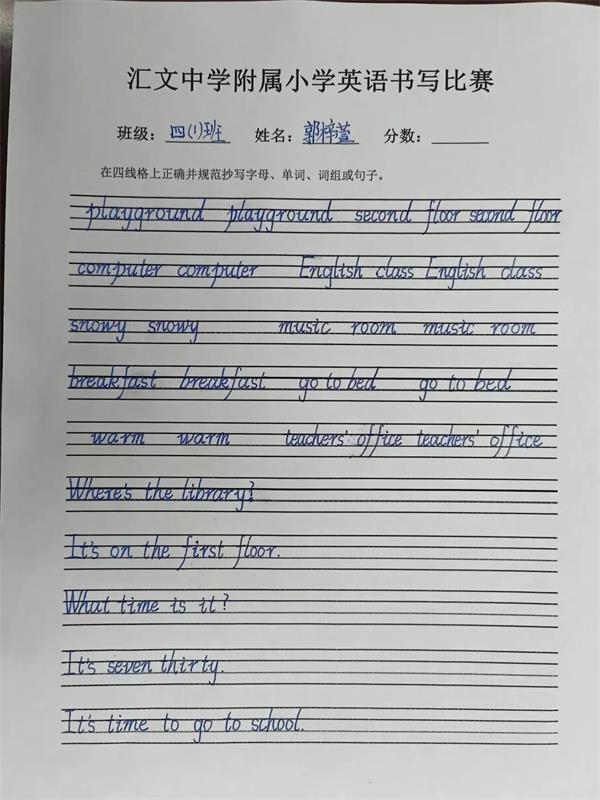 汇文中学附属小学英语书写比赛
班级：四(1)班 姓名：郭梓萱 分数：
在四线格上正确并规范抄写字母、单词、词组或句子。
playground playground second floor second floor
computer computer English class English class
snowy snowy music room music room
breakfast breakfast go to bed go to bed
warm warm teachers' office teachers' office
Where's the library?
It's on the first floor.
What time is it?
It's seven thirty.
It's time to go to school.